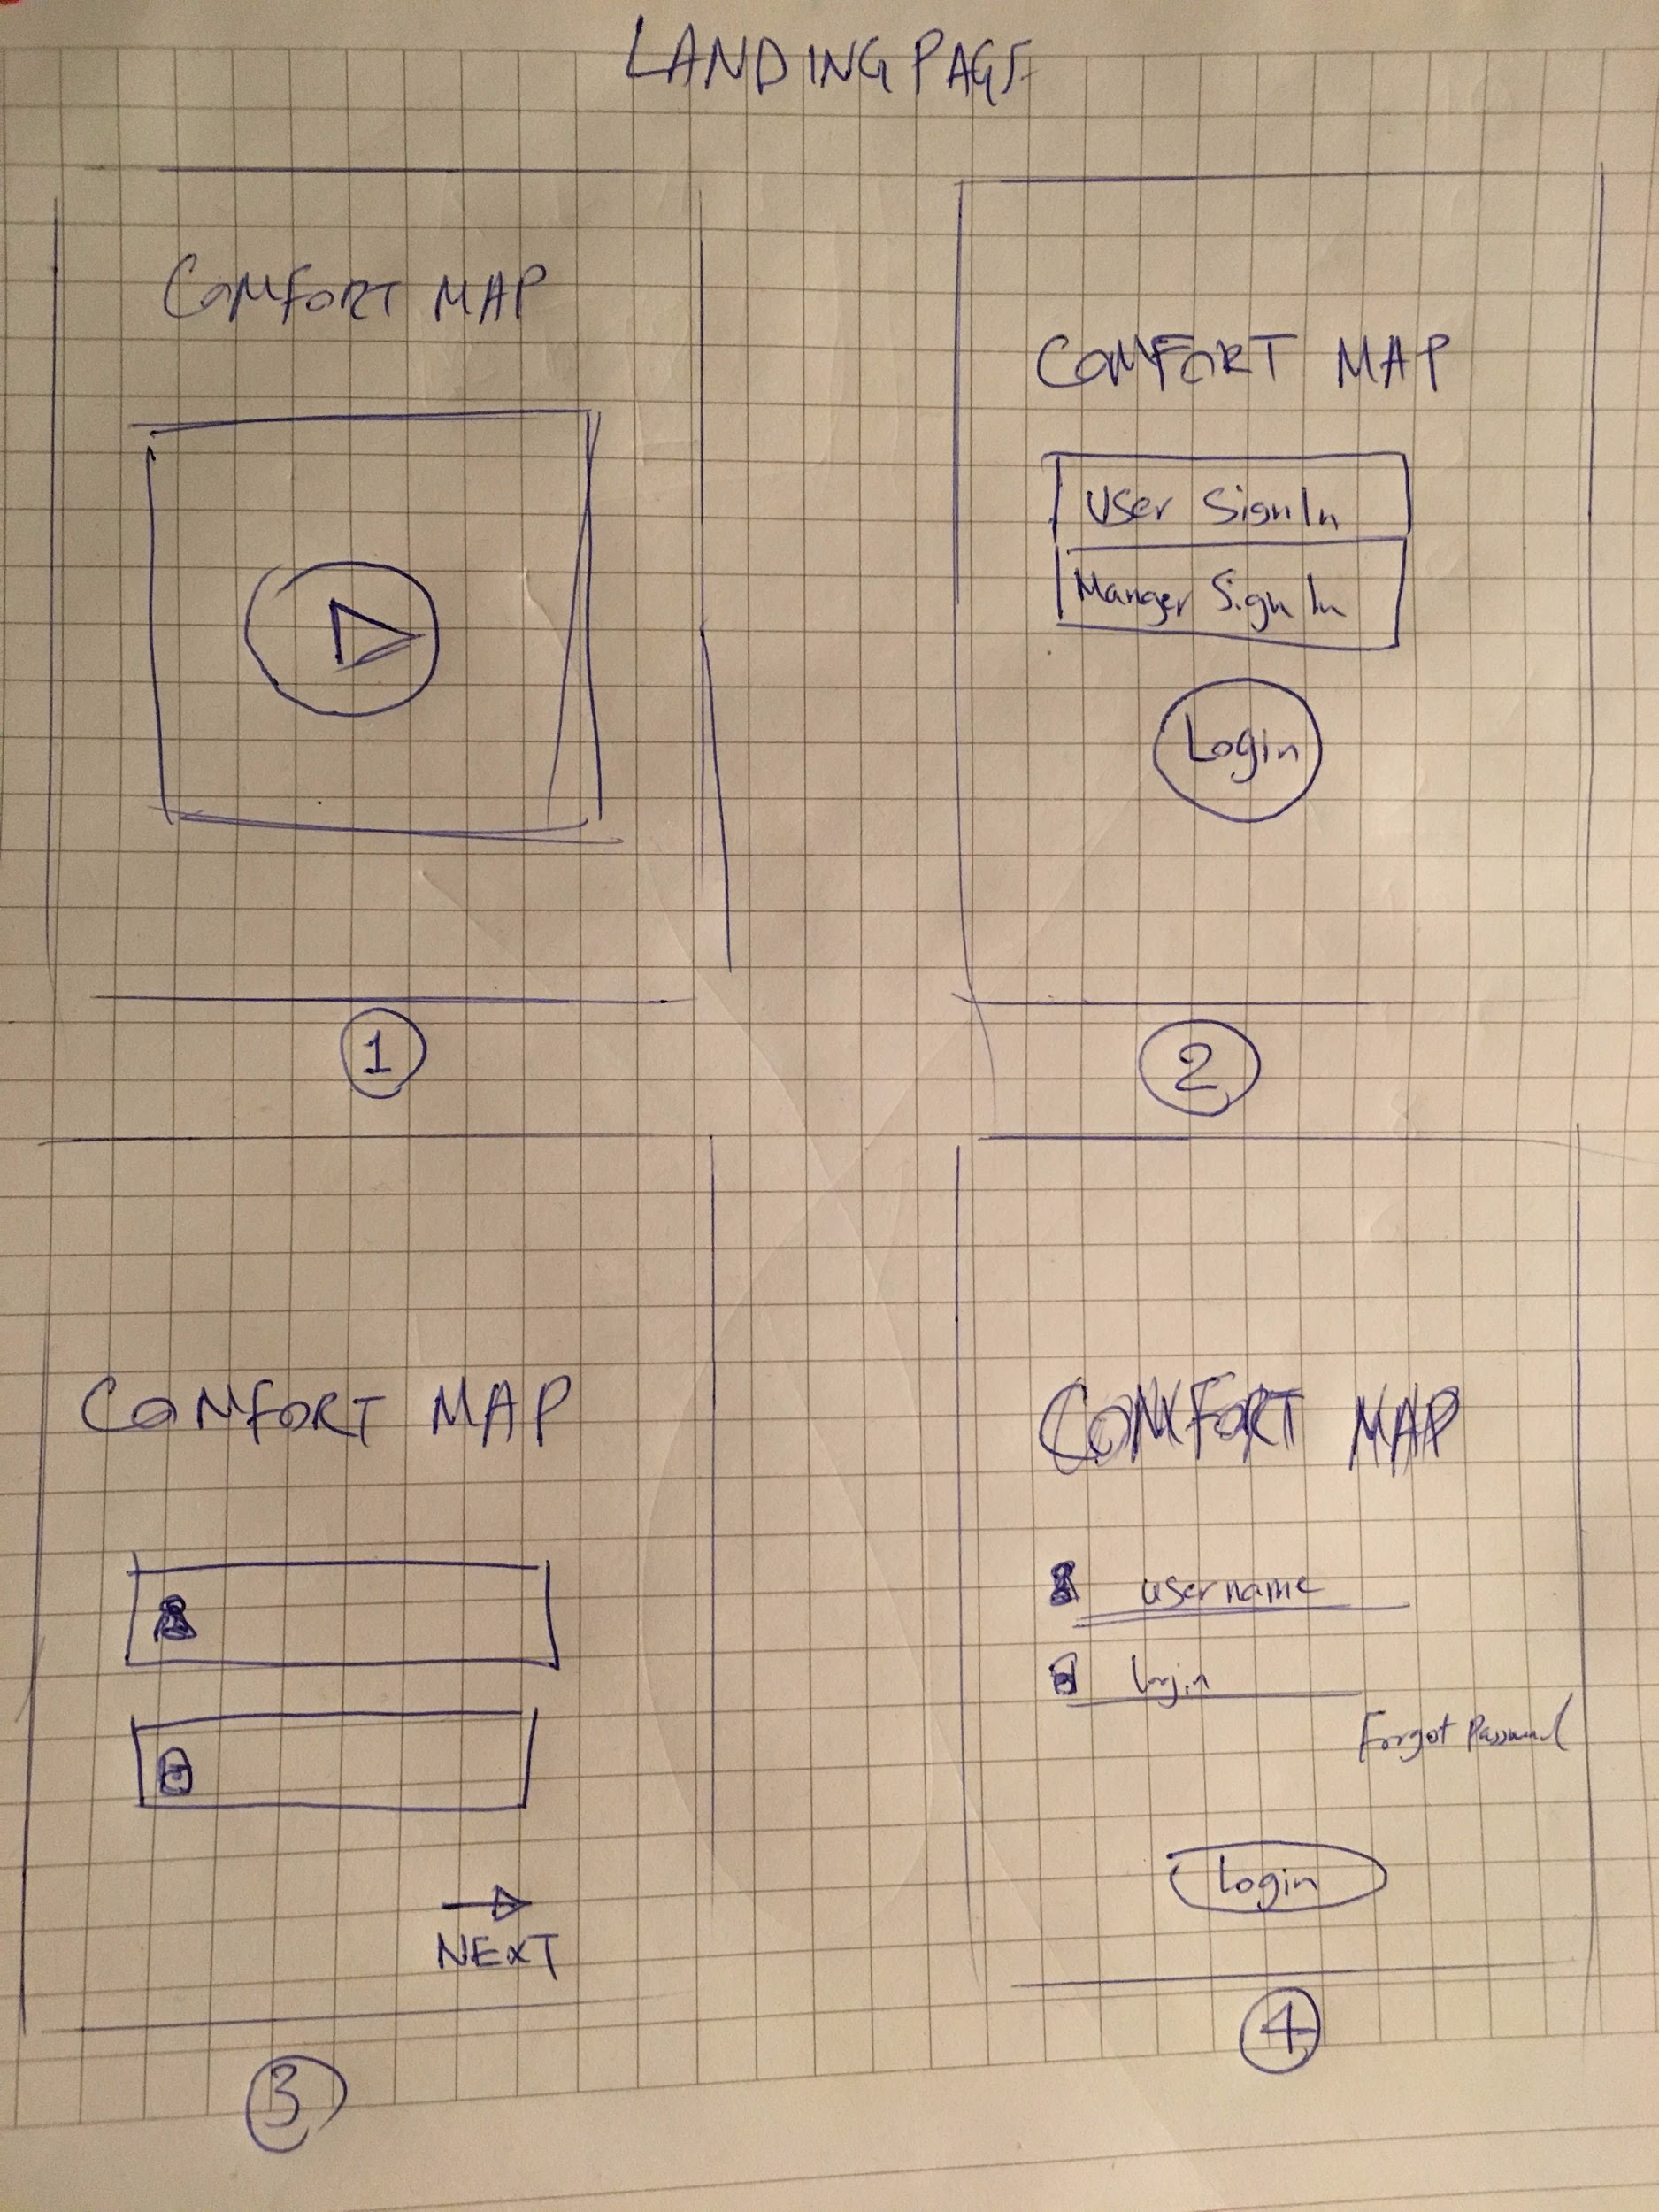 LANDING PAGE
COMFORT MAP
1
COMFORT MAP
User SignIn
Manger Sign In
Login
2
COMFORT MAP
NEXT
3
COMFORT MAP
username
login
Forgot Password
Login
4